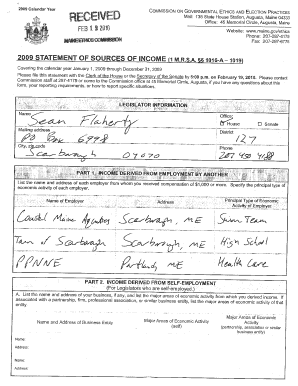 2009 Calendar Year
RECEIVED
FEB 1 2010
MAINE ETHICS COMMISSION
COMMISSION ON GOVERNMENTAL ETHICS AND ELECTION PRACTICES
Mail: 135 State House Station, Augusta, Maine 04333
Office: 45 Memorial Circle, Augusta, Maine
Website: www.maine.gov/ethics
Phone: 207-287-4179
Fax: 207-287-6775
2009 STATEMENT OF SOURCES OF INCOME (1 M.R.S.A. §§ 1016-A – 1019)
Covering the calendar year January 1, 2009 through December 31, 2009
Please file this statement with the Clerk of the House or the Secretary of the Senate by 5:00 p.m. on February 19, 2010. Please contact
Commission staff at 287-4179 or come to the Commission office at 45 Memorial Circle, Augusta, if you have any questions about this
form, your reporting requirements, or how to report specific situations.
LEGISLATOR INFORMATION
Name
Sean Flaherty
Office:
House Senate
Mailing address
PO Box 6998
District
127
City, zip code
Scarborough 04070
Phone
PART 1. INCOME DERIVED FROM EMPLOYMENT BY ANOTHER
List the name and address of each employer from whom you received compensation of $1,000 or more. Specify the principal type of
economic activity of each employer.
Name of Employer Address Principal Type of Economic
Activity of Employer
Coastal Maine Scarborough, ME Swim Team
Town of Scarborough Scarborough, ME High School
PPNNE Portland, ME Health Care
PART 2. INCOME DERIVED FROM SELF-EMPLOYMENT
(For Legislators who are self-employed.)
A. List the name and address of your business, if any, and list the major areas of economic activity from which you derived income. If
associated with a partnership, firm, professional association, or similar business entity, list the major areas of economic activity of that
entity.
Name and Address of Business Entity Major Areas of Economic Activity
(self) Major Areas of Economic
Activity
(partnership, association or similar
business entity)
Name:
Address:
Name:
Address: